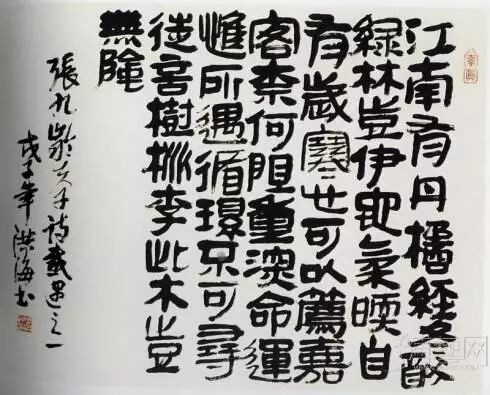 江南有丹橘經冬猷
綠林豈伊地氣暖自
有歲寒心可以薦嘉
客奈何阻重深命運
惟所遇循環不可尋
徒言樹桃李此木豈
無陰
張九齡詩遇之一
戊子年洪海书